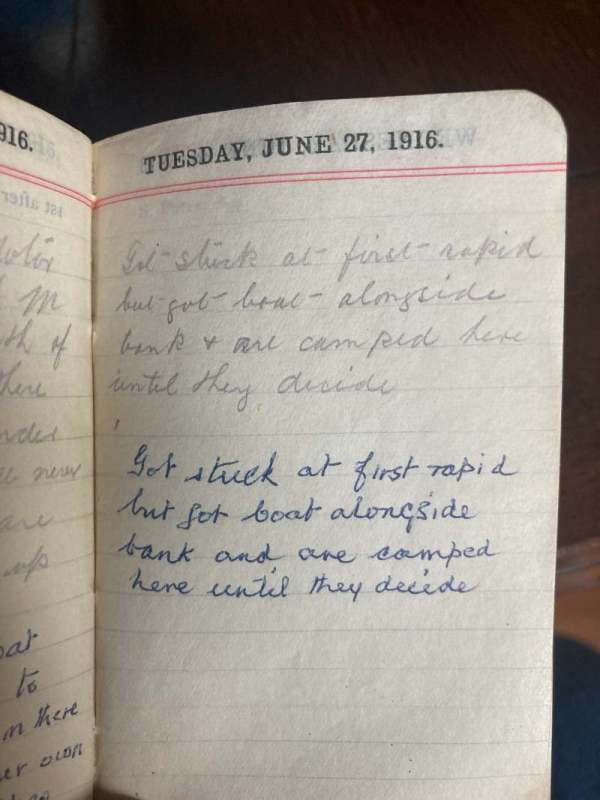 916.
1st after
of
there
are
up
to
in there
er own
TUESDAY, JUNE 27, 1916.
Got stuck at first rapid
but got boat alongside
bank & are camped here
until they decide
Got stuck at first rapid
but got boat alongside
bank and are camped
here until they decide